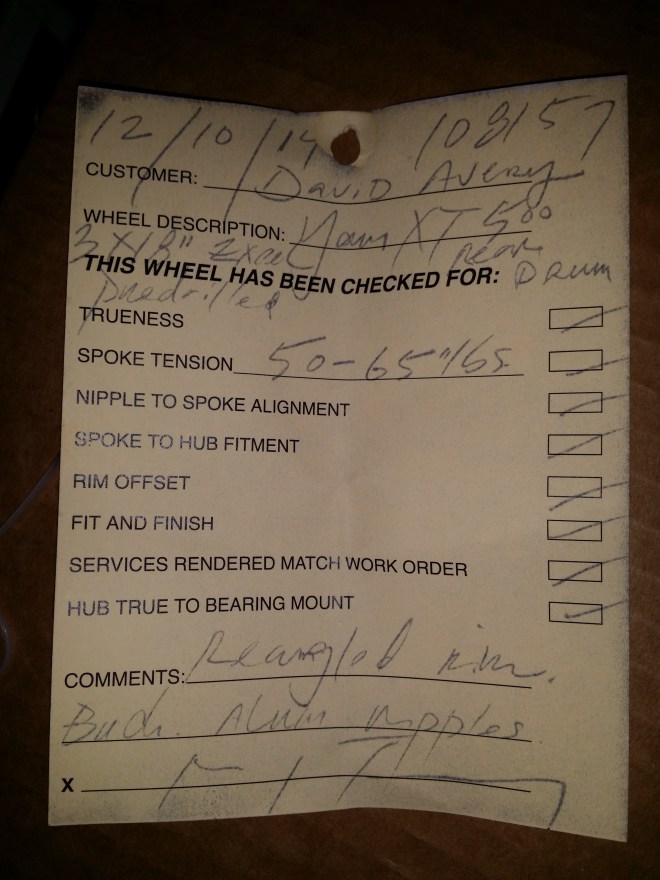 12/10/14 108157
CUSTOMER: David Avery
WHEEL DESCRIPTION: Yam XT 500
3 X 18" Excel rear Drum
Predrilled
THIS WHEEL HAS BEEN CHECKED FOR:
TRUENESS
SPOKE TENSION 50-65"/lbs
NIPPLE TO SPOKE ALIGNMENT
SPOKE TO HUB FITMENT
RIM OFFSET
FIT AND FINISH
SERVICES RENDERED MATCH WORK ORDER
HUB TRUE TO BEARING MOUNT
COMMENTS: Reangled rim.
Alum Nipples
X